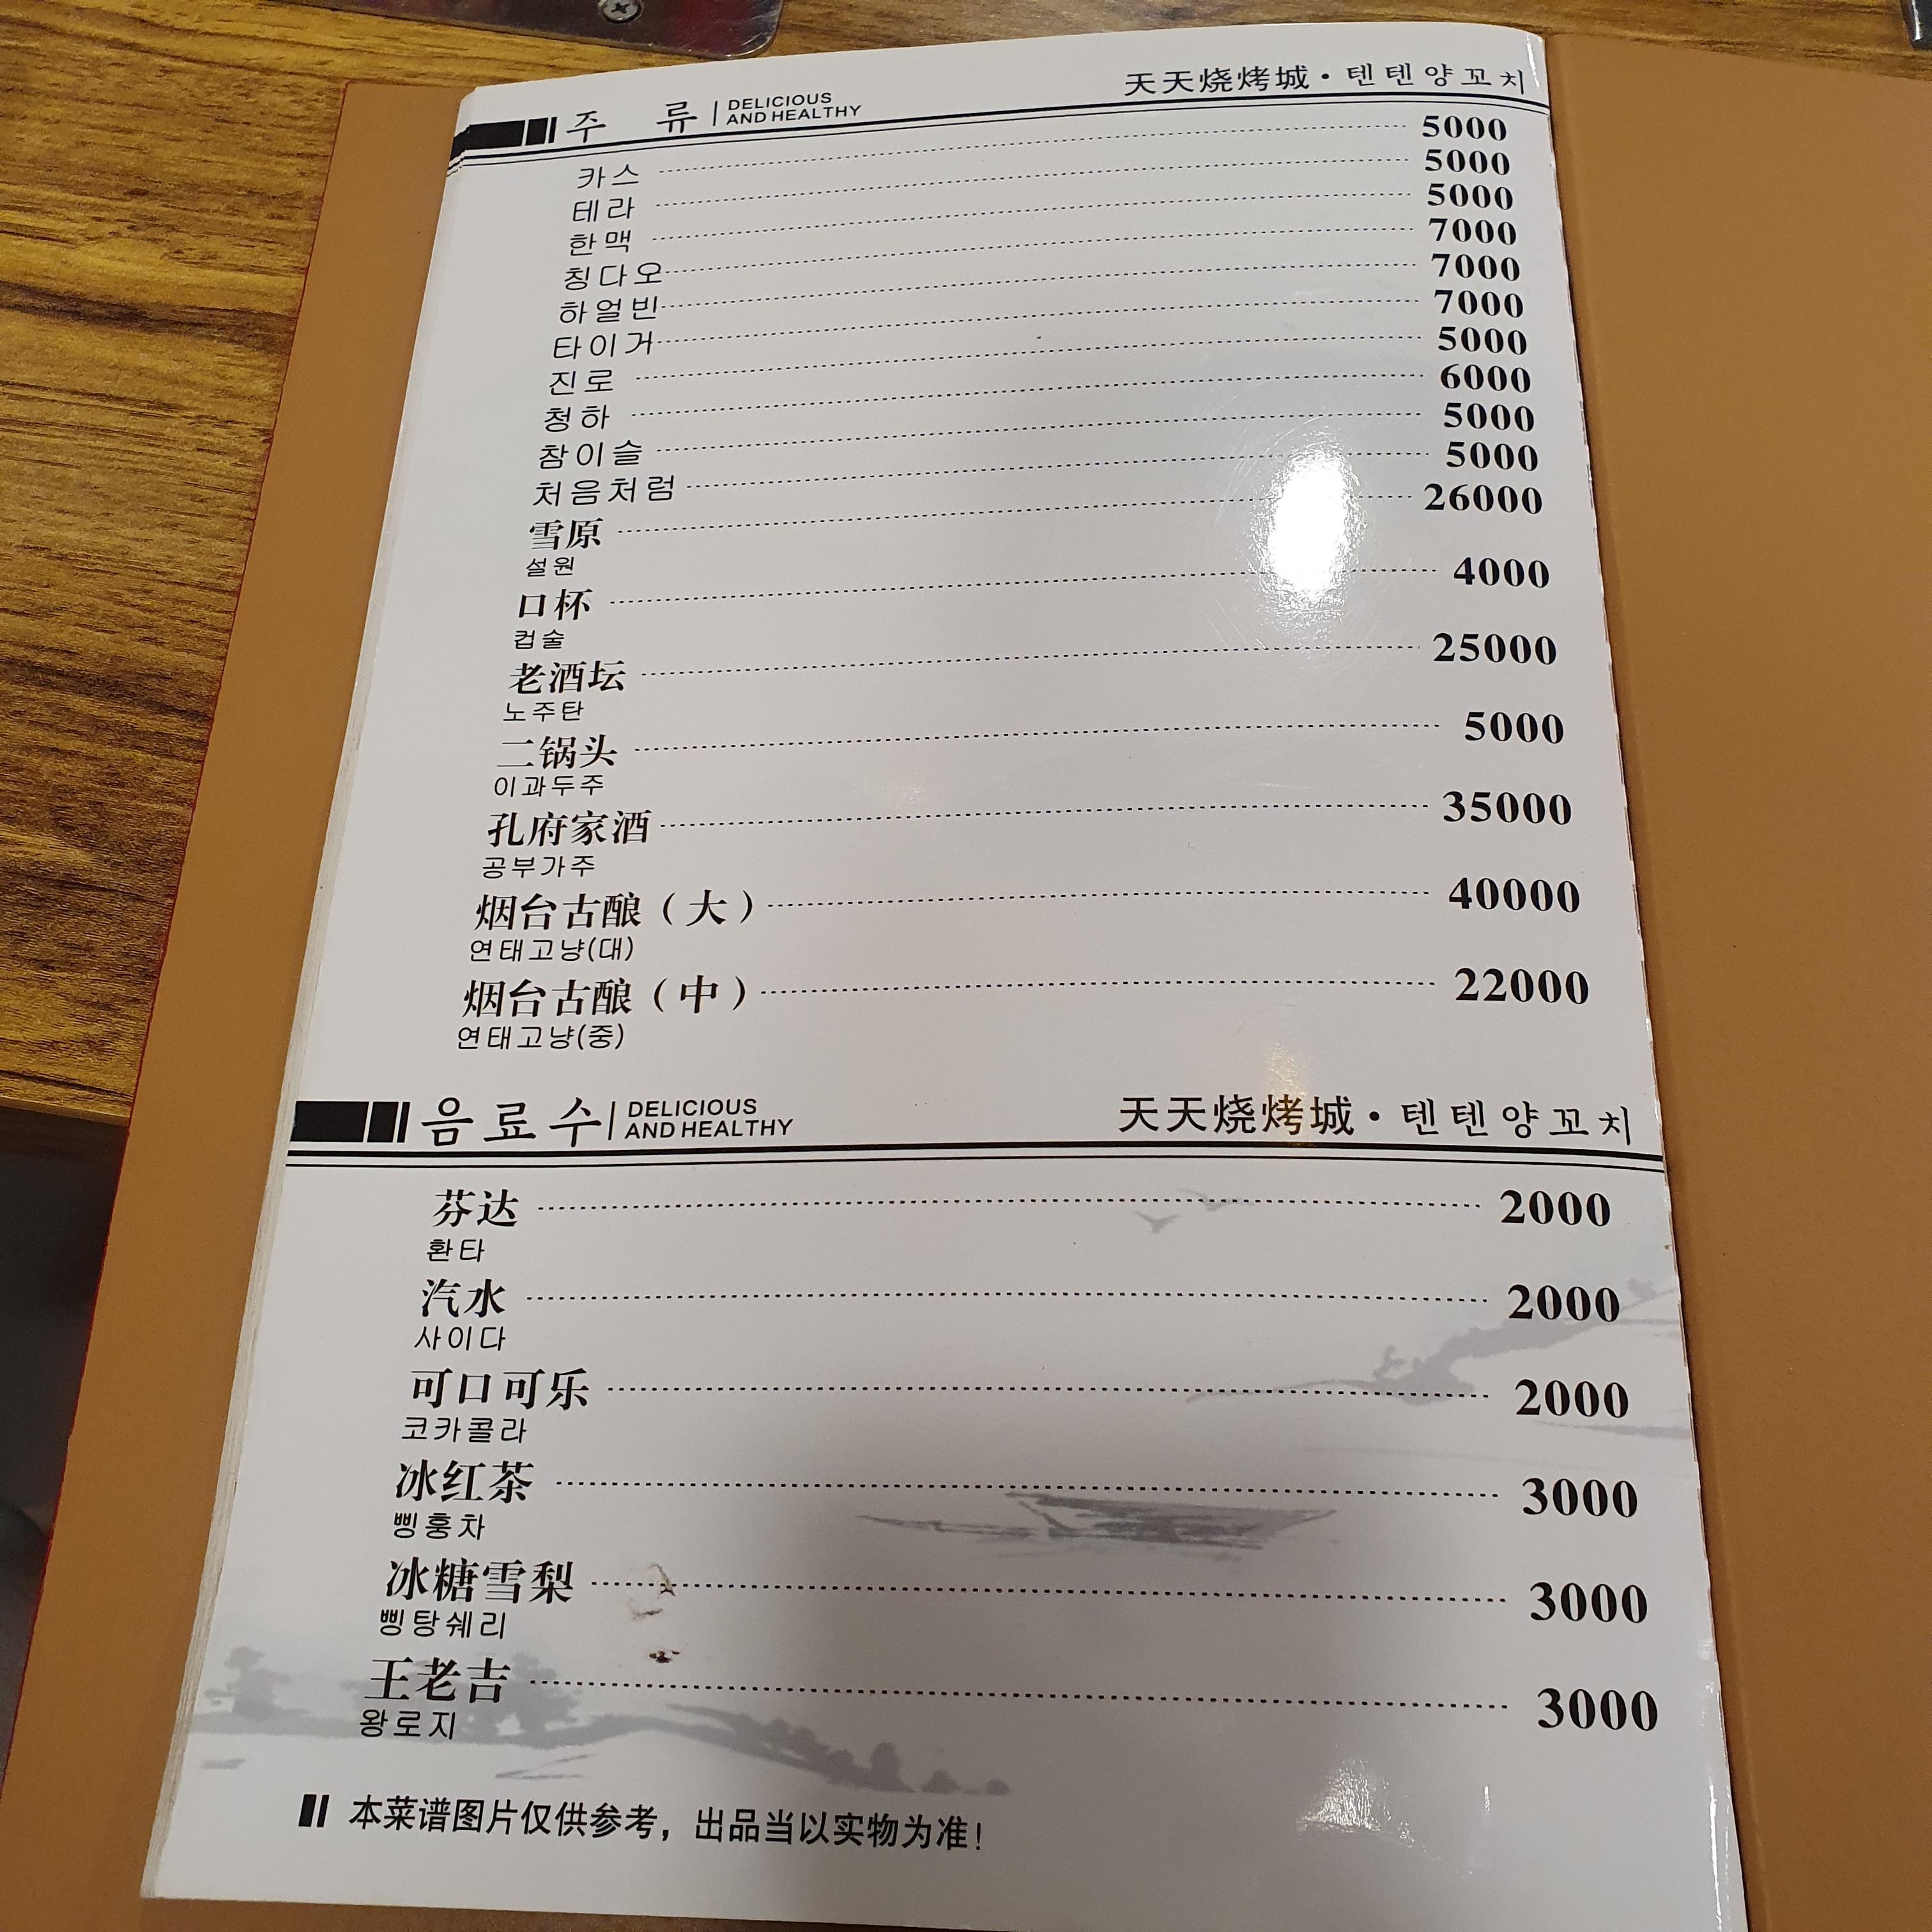 주 류 DELICIOUS AND HEALTHY 天天烧烤城·텐텐양꼬치
카스 5000
테라 5000
한맥 5000
칭다오 7000
하얼빈 7000
타이거 7000
진로 5000
청하 6000
참이슬 5000
처음처럼 5000
雪原 26000
설원
口杯 4000
컵술
老酒坛 25000
노주탄
二锅头 5000
이과두주
孔府家酒 35000
공부가주
烟台古酿（大） 40000
연태고냥(대)
烟台古酿（中） 22000
연태고냥(중)
음료수 DELICIOUS AND HEALTHY 天天烧烤城·텐텐양꼬치
芬达 2000
환타
汽水 2000
사이다
可口可乐 2000
코카콜라
冰红茶 3000
삥훙차
冰糖雪梨 3000
삥탕쉐리
王老吉 3000
왕로지
本菜谱图片仅供参考，出品当以实物为准！